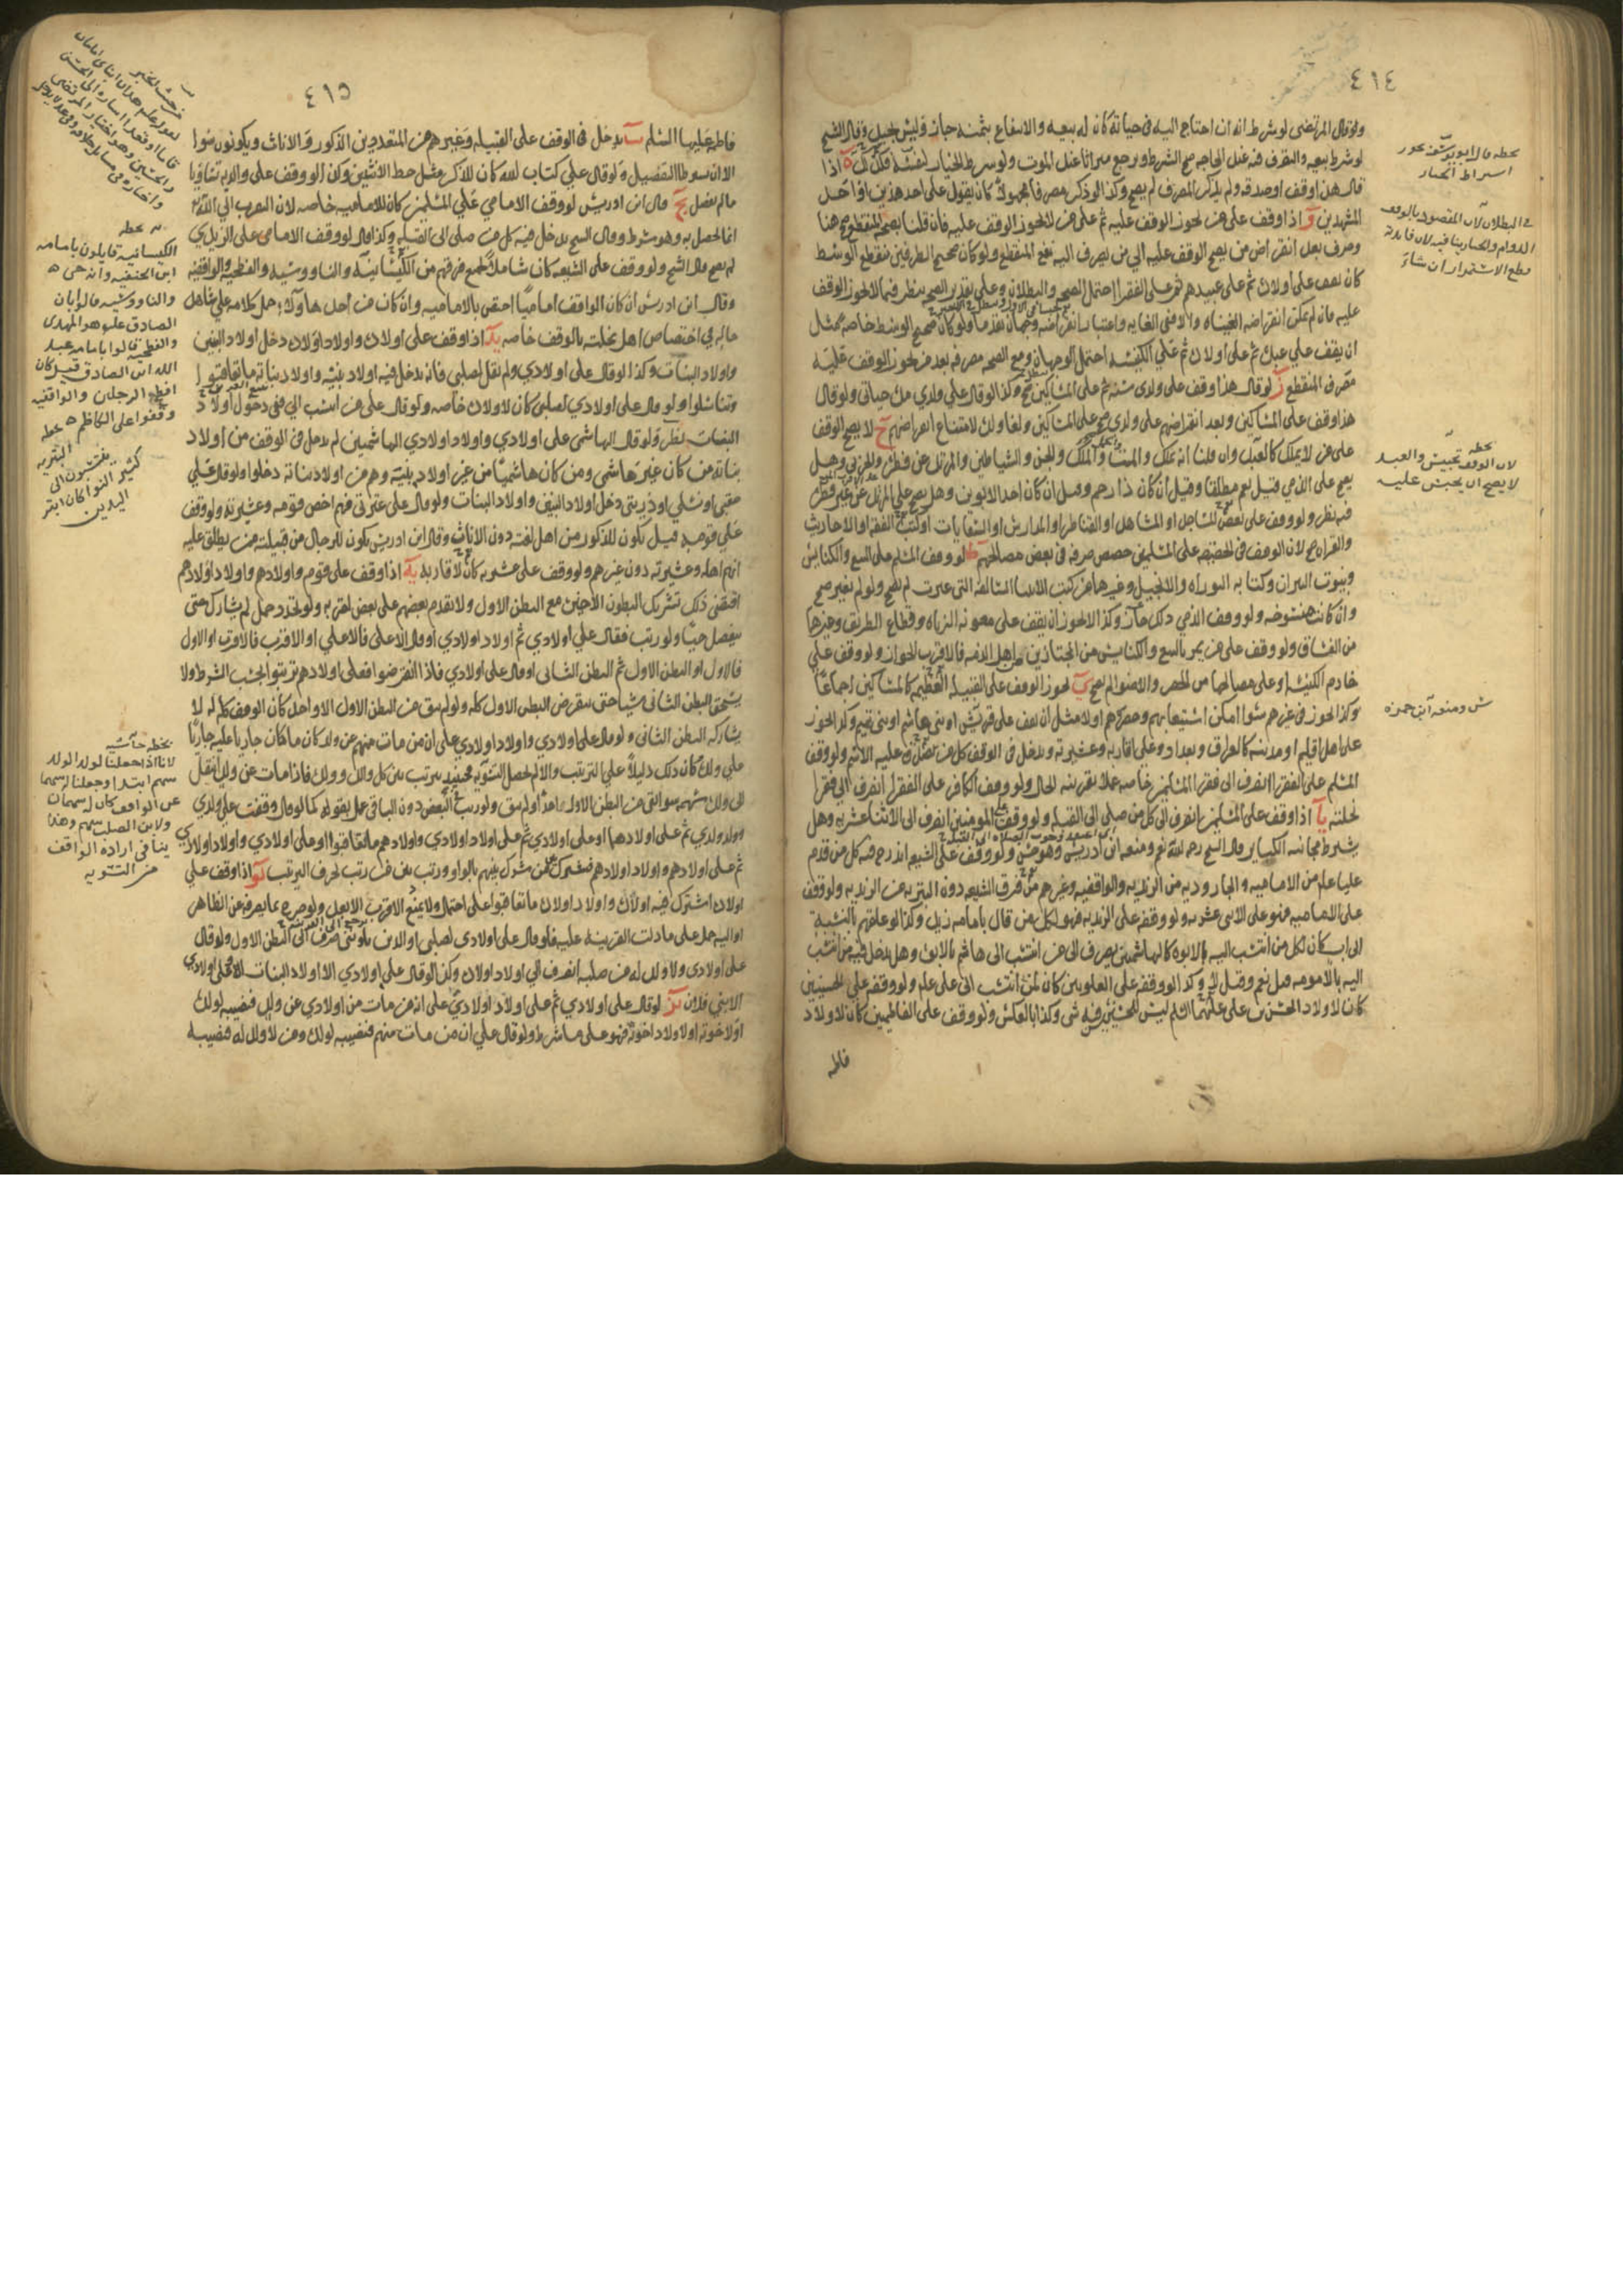 ٤١٤
ولو قال المرتضى لو شرط انه ان احتاج اليه في حياته كان له بيعه والانتفاع بثمنه جاز وليس بجيد وقال الشيخ
لو شرط بيعه والتصرف فيه عند الحاجه صح الشرط ويرجع ميراثا عند الموت ولو شرط الخيار لنفسه اذا
قال هذا وقف او صدقه ولم يذكر المصرف لم يصح وكذا لو ذكر مصرفا مجهولا كان يقول على احد هذين او احد
المشهدين و اذا وقف على من لا يجوز الوقف عليه ثم على من يجوز الوقف عليه فان قلنا بصحه المنقطع صح هنا
وصرف بعد انقراض من يصح الوقف عليه الى من يصرف اليه نفع المنقطع ولو كان صحيح الطرفين منقطع الوسط
كان يقف على اولاده ثم على عبيدهم ثم على الفقرا احتمل الصحه والبطلان وعلى تقدير الصحه ينظر فيما لا يجوز الوقف
عليه فان لم يمكن انقراضه الغيناه والا ففي الغايه واعتبار انقراضه وجهان تقدما ولو كان صحيح الوسط خاصه مثل
ان يقف على عبده ثم على اولاده ثم على الكنيسه احتمل الوجهان ومع الصحه مصرفه بعد من يجوز الوقف عليه
مصرف المنقطع ز لو قال هذا وقف على ولدي سنه ثم على المساكين صح وكذا لو قال على ولدي مدة حياتي ولو قال
هذا وقف على المساكين وبعد انقراضهم على ولدي صح على المساكين ولغا ولده لامتناع انقراضهم ح لا يصح الوقف
على من لا يملك كالعبد وان قلنا انه يملك والميت والملك والجن والشياطين والمرتد عن فطره والحربي وهل
يصح على الذمي قيل نعم مطلقا وقيل ان كان ذا رحم وقيل ان كان احد الابوين وهل يصح على المرتد عن غير فطره
فيه نظر ولو وقف على بعض المساجد او المشاهد او القناطر او المدارس او السقايات او كتب الفقه او الاحاديث
والقران صح لان الوقف في الحقيقه على المسلمين خصص صرفه في بعض مصالحهم ط لو وقف المسلم على البيع والكنايس
وبيوت النيران وكتابه التوراه والانجيل وغيرها من كتب الانبيا السالفه التي غيرت لم يصح ولو لم يغير صح
وان كانت منسوخه ولو وقف الذمي ذلك جاز وكذا لا يجوز ان يقف على معونه الزناه وقطاع الطريق وغيرها
من الفساق ولو وقف على من يمر بالبيع والكنايس من المجتازين من اهل الذمه فالاقرب الجواز ولو وقف على
خادم الكنيسه او على مصالحها من الحصر والاضوا لم يصح ي يجوز الوقف على القبيله العظيمه كالمساكين اجماعا
وكذا يجوز في غيرهم سوا امكن استيعابهم وحصرهم او لا مثل ان يقف على قريش او بني هاشم او بني تميم وكذا يجوز
على اهل اقليم او مدينه كالعراق وبغداد وعلى اقاربه وعشيرته ويدخل في الوقف كل من يصدق عليه الاسم ولو وقف
المسلم على الفقرا انصرف الى فقرا المسلمين خاصه عملا بقرينه الحال ولو وقف الكافر على الفقرا انصرف الى فقرا
نحلته يا اذا وقف على المسلمين انصرف الى كل من صلى الى القبله ولو وقف على المومنين انصرف الى الاثنا عشريه وهل
يشترط مجانبه الكباير قال الشيخ رحمه الله نعم ومنعه ابن ادريس وهو حسن ولو وقف على الشيعه اندرج فيه كل من قدم
عليا عليه من الاماميه والجاروديه من الزيديه والواقفيه وغيرهم من فرق الشيعه دون البتريه من الزيديه ولو وقف
على الاماميه فهو على الاثنى عشريه ولو وقفه على الزيديه فهو لكل من قال بامامه زيد وكذا لو علقهم بالنسبه
الى اب كان لكل من انتسب اليه بالابوه كالهاشميين يصرف الى من انتسب الى هاشم بالابوه وهل يدخل فيه من انتسب
اليه بالامومه قيل نعم وقيل لا وكذا لو وقفه على العلويين كان لمن انتسب الى علي عليه ولو وقفه على الحسينيين
كان لاولاد الحسين عليهما السلم ليس للحسنيين فيه شي وكذا بالعكس ولو وقف على الفاطميين كان لاولاد
فاطمه
بخطه قال ابو يوسف يجوز
اشتراط الخيار
في البطلان لان المقصود بالوقف
الدوام والخيار ينافيه لان فايدته
قطع الاستقرار ان شاء
بخطه
لان الوقف تحبيس والعبد
لا يصح ان يحبس عليه
ش ومنعه ابن حمزه
٤١٥
فاطمه عليها السلم يب يدخل في الوقف على القبيله وغيرهم من المتعددين الذكور والاناث ويكونون سوا
الا ان يشترط التفصيل ولو قال على كتاب الله كان للذكر مثل حظ الانثيين وكذا لو وقف على والديه تساويا
ما لم يفضل يج قال ابن ادريس لو وقف الامامي على المسلمين كان للاماميه خاصه لان التقرب الى الله تع
انما يحصل به وهو شرط وقال الشيخ يدخل فيه كل من صلى الى القبله وكذا قال لو وقف الامامي على الزيدي
لم يصح قال الشيخ ولو وقف على الشيعه كان شاملا لجميع فرقهم من الكيسانيه والناووسيه والفطحيه والواقفيه
وقال ابن ادريس ان كان الواقف اماميا اختص بالاماميه وان كان من احد هاولا حمل كلامه على شاهد
حاله في اختصاص اهل نحلته بالوقف خاصه يد اذا وقف على اولاده واولاد اولاده دخل اولاد البنين
واولاد البنات وكذا لو قال على اولادي ولم يقل لصلبي فانه يدخل فيه اولاد بنيه واولاد بناته ما تعاقبوا
وتناسلوا ولو قال على اولادي لصلبي كان لاولاده خاصه ولو قال على من انتسب الي ففي دخول اولاد
البنات نظر ولو قال الهاشمي على اولادي واولاد اولادي الهاشميين لم يدخل في الوقف من اولاد
بناته من كان غير هاشمي ومن كان هاشميا من غير اولاد بنيه وهم من اولاد بناته دخلوا ولو قال على
عقبي او نسلي او ذريتي دخل اولاد البنين واولاد البنات ولو قال على عترتي فهم اخص قومه وعشيرته ولو وقف
على قومه قيل يكون للذكور من اهل لغته دون الاناث وقال ابن ادريس يكون للرجال من قبيلته ممن يطلق عليه
انهم اهله وعشيرته دون غيرهم ولو وقف على عشيرته كان لاقاربه يه اذا وقف على قومه واولادهم واولاد اولادهم
اقتضى ذلك تشريك البطون الاخير مع البطن الاول ولا يقدم بعضهم على بعض لقربه ولو تجدد حمل لم يشارك حتى
ينفصل حيا ولو رتب فقال على اولادي ثم اولاد اولادي او قال الاعلى فالاعلى او الاقرب فالاقرب او الاول
فالاول او البطن الاول ثم البطن الثاني او قال على اولادي فاذا انقرضوا فعلى اولادهم ترتبوا بحسب الشرط ولا
يستحق البطن الثاني شيا حتى ينقرض البطن الاول كله ولو لم يبق من البطن الاول الا واحد كان الوقف كله له لا
يشاركه البطن الثاني ولو قال على اولادي واولاد اولادي على ان من مات منهم عن ولد كان ما كان جاريا عليه جاريا
على ولده كان ذلك دليلا على الترتيب والا لم يحصل التسويه فحينئذ يترتب بين كل والد وولده فاذا مات عن ولد انتقل
الى ولده سهمه سوا بقي من البطن الاول احد او لم يبق ولو رتب البعض دون الباقي عمل بقوله كما لو قال وقفت على ولدي
وولد ولدي ثم على اولادهما او على اولادي ثم على اولاد اولادي واولادهم ما تعاقبوا او على اولادي واولاد اولادي
ثم على اولادهم واولاد اولادهم فيشترك من شرك بينهم بالواو ورتب من رتب بحرف الترتيب يو اذا وقف على
اولاده اشترك فيه اولاده واولاد اولاده ما تعاقبوا على احتمال ولا يمنع الاقرب الابعد ولو صرح بما يصرفه عن الظاهر
او اليه حمل على ما دلت القرينه عليه فلو قال على اولادي لصلبي او الذين يلونني صرف الى البطن الاول ولو قال
على اولادي ولا ولد له من صلبه انصرف الى اولاد اولاده وكذا لو قال على اولادي الا اولاد البنات
الا بني فلان يز لو قال على اولادي ثم على اولاد اولادي على انه من مات من اولادي عن ولد فنصيبه لولده
او لاخوته او لاولاد اخوته فهو على ما شرط ولو قال على ان من مات منهم فنصيبه لولده ومن لا ولد له فنصيبه
بخطه
الكيسانيه قايلون بامامه
ابن الحنفيه وانه حي
والناووسيه قالوا بان
الصادق عليه هو المهدى
والفطحيه قالوا بامامه عبد
الله ابن الصادق قيل كان
افطح الرجلين والواقفيه
وقفوا على الكاظم بخطه
البتريه
ينتسبون الى
كثير النوا كان ابتر
اليدين
بخطه حاشيه
لانا اذا جعلنا لولد الولد
سهم ابتدا وجعلنا له سهما
عن الواقف كان له سهمان
ولابن الصلب سهم وهذا
ينافي اراده الواقف
من التسويه